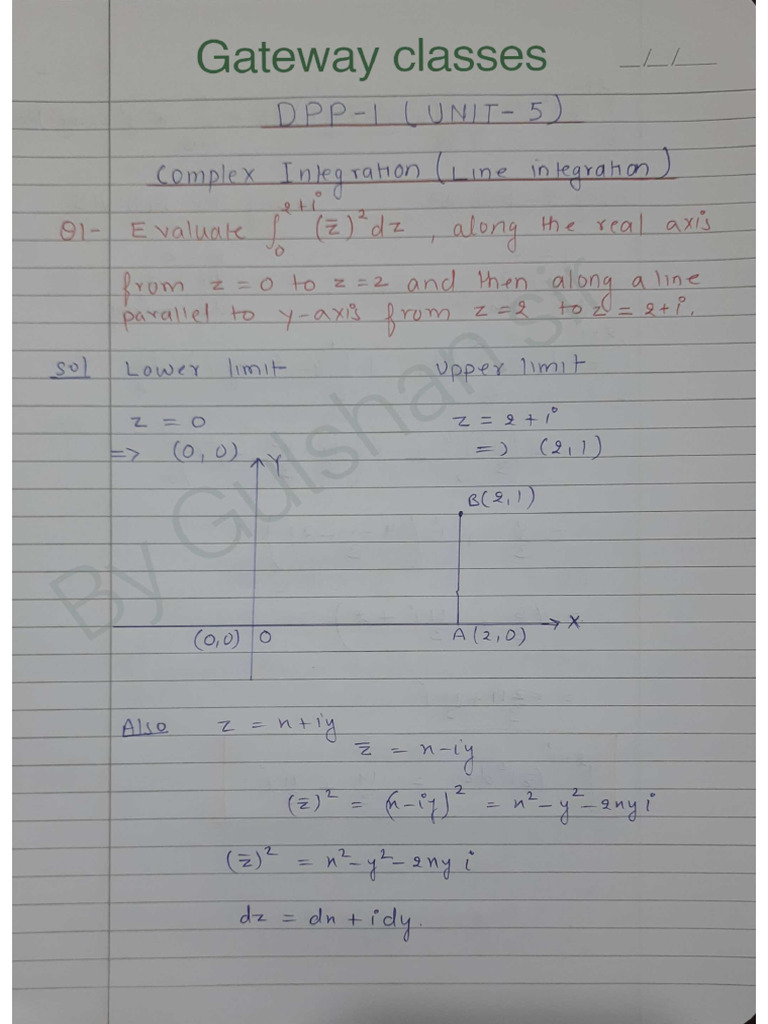 Gateway classes
_/_/_
DPP-1 (UNIT-5)
Complex Integration (Line integration)
Q1- Evaluate ∫₀^{2+i} (z̄)² dz, along the real axis
from z=0 to z=2 and then along a line
parallel to y-axis from z=2 to z=2+i.
Sol Lower limit Upper limit
z = 0 z = 2+i
=> (0,0) => (2,1)
Y
B(2,1)
X
(0,0) O A(2,0)
By Gulshan sir
Also z = x+iy
z̄ = x-iy
(z̄)² = (x-iy)² = x²-y²-2xyi
(z̄)² = x²-y²-2xyi
dz = dx+idy.